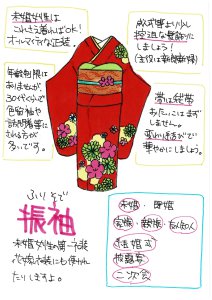 未婚女性は
これさえ着ればOK!
オールマイティな正装。
年齢制限は
ありませんが、
30代くらいで
色留袖や
訪問着等に
される方が
多いです。
成人式等よりかし
控えめな着飾りに
しましょう!
(主役は新郎新婦)
帯は袋帯
お太鼓にはまず
しません。
変わり結びで
華やかにしましょう。
ふりそで
振袖
未婚女性の第一礼装
花嫁衣装にも使われ
たりしますよ。
未婚・既婚
結婚式
披露宴
二次会